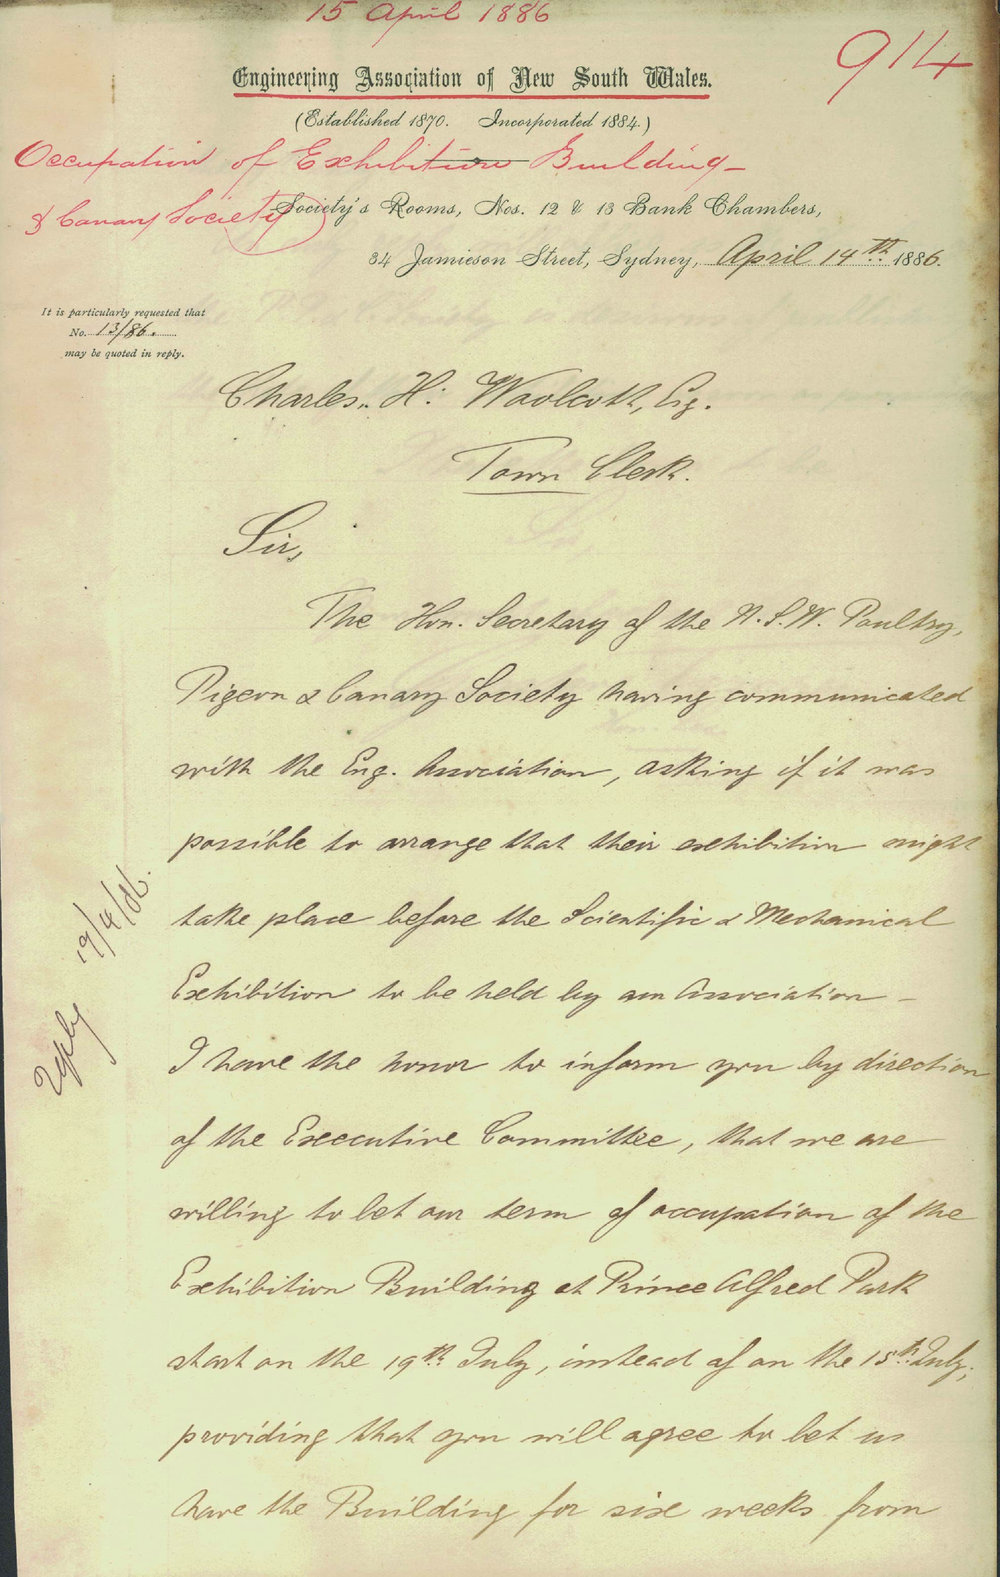 15 April 1886
914
Engineering Association of New South Wales.
(Established 1870. Incorporated 1884.)
Occupation of Exhibition Building
& Canary Society
Society's Rooms, Nos. 12 & 13 Bank Chambers,
34 Jamieson Street, Sydney, April 14th 1886.
It is particularly requested that
No. 13/86.
may be quoted in reply.
Charles. H. Woolcott, Esq.
Town Clerk.
Sir,
The Hon. Secretary of the N.S.W. Poultry,
Pigeon & Canary Society having communicated
with the Eng. Association, asking if it was
possible to arrange that their exhibition might
take place before the Scientific & Mechanical
Exhibition to be held by our Association -
I have the honor to inform you by direction
of the Executive Committee, that we are
willing to let our term of occupation of the
Exhibition Building at Prince Alfred Park
start on the 19th July, instead of on the 15th July;
providing that you will agree to let us
have the Building for six weeks from
Reply 19/4/86.